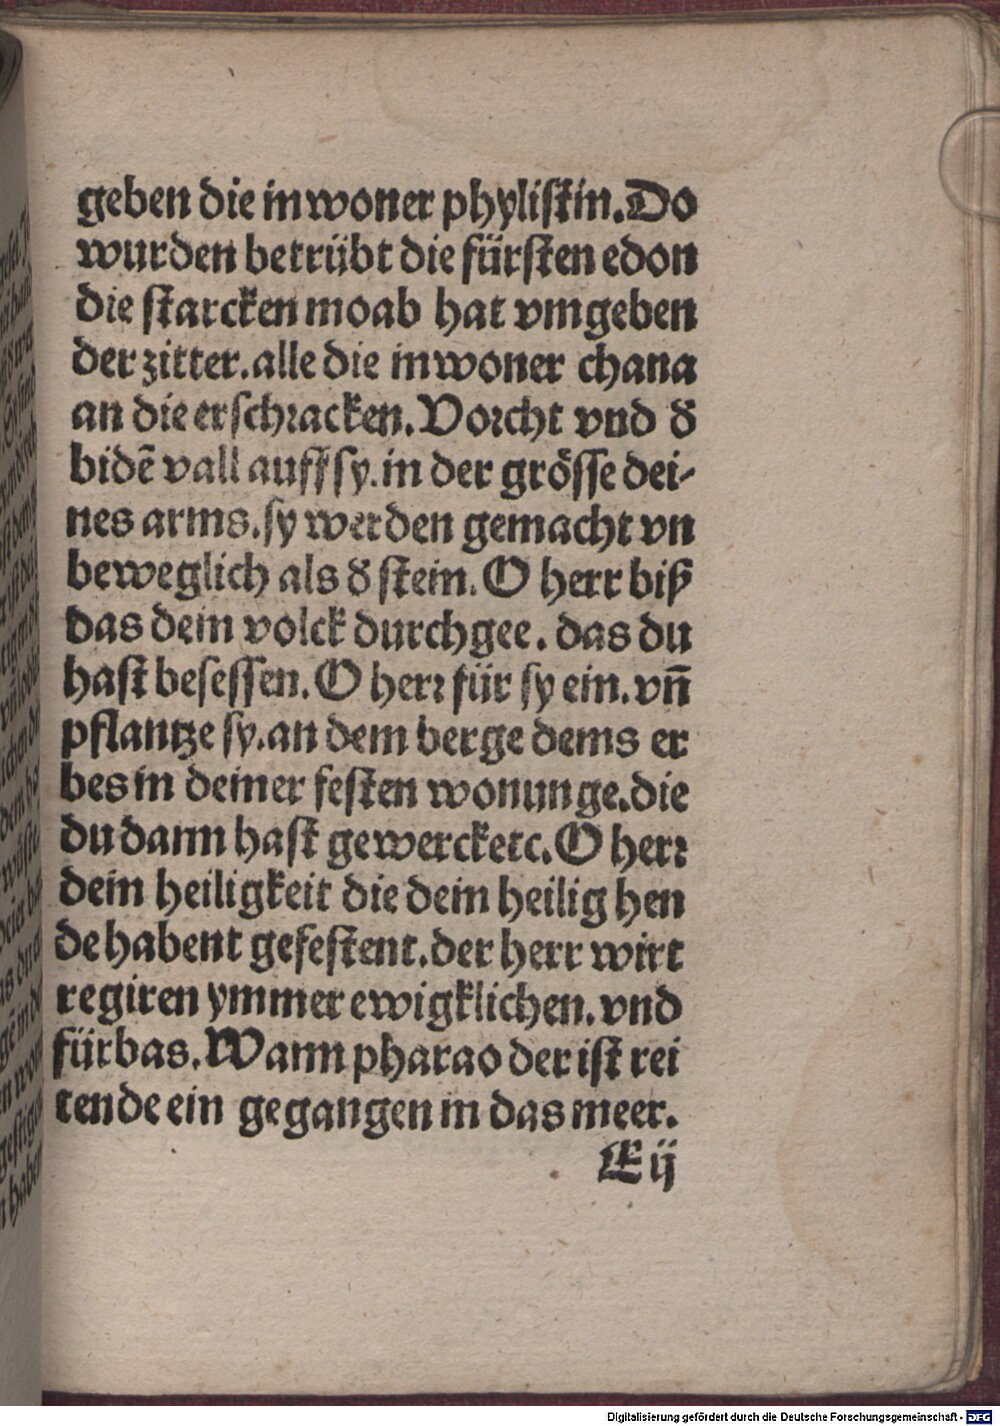 geben die inwoner phylistin. Do
wurden betrübt die fürsten edon
die starcken moab hat vmgeben
der zitter. alle die inwoner chana
an die erschracken. Vorcht vnd đ
bidē vall auff sy. in der grösse dei-
nes arms. sy werden gemacht vn
beweglich als đ stein. O herr biß
das dein volck durchgee. das du
hast besessen. O herr für sy ein. vnn̄
pflantze sy. an dem berge deins er
bes in deiner festen wonunge. die
du dann hast gewercketc. O herr
dein heiligkeit die dein heilig hen
de habent gefestent. der herr wirt
regiren ymmer ewigklichen. vnd
fürbas. Wann pharao der ist rei
tende ein gegangen in das meer.
E ij
Digitalisierung gefördert durch die Deutsche Forschungsgemeinschaft - DFG